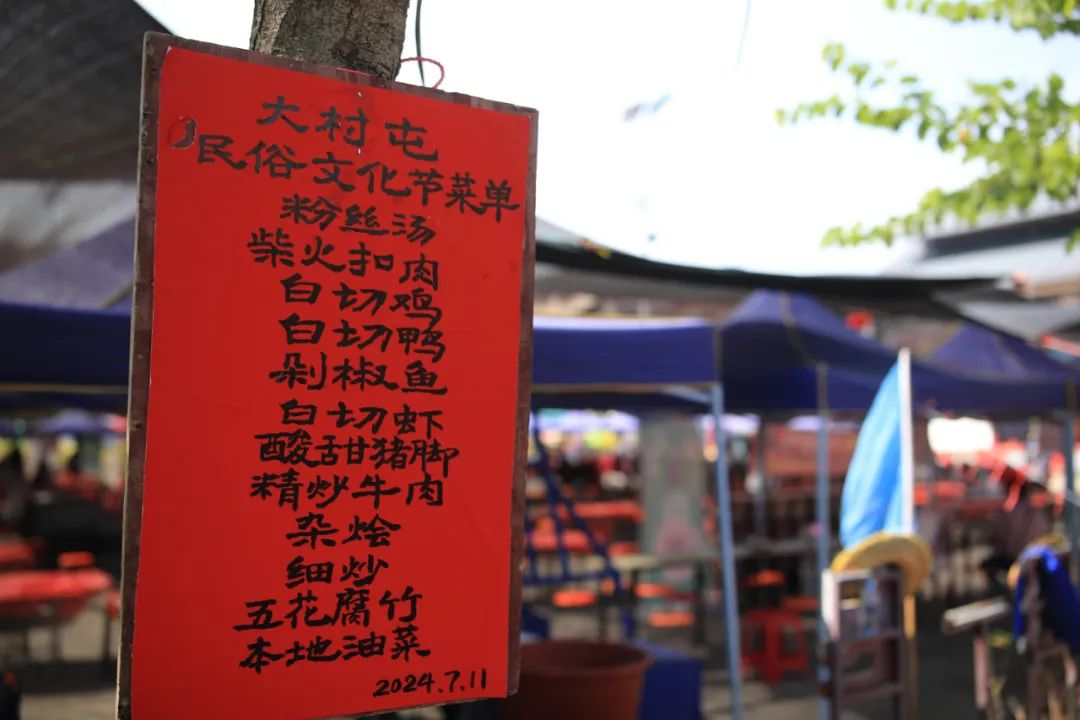 大村屯
民俗文化节菜单
粉丝汤
柴火扣肉
白切鸡
白切鸭
剁椒鱼
白切虾
酸甜猪脚
精炒牛肉
杂烩
细炒
五花腐竹
本地油菜
2024.7.11